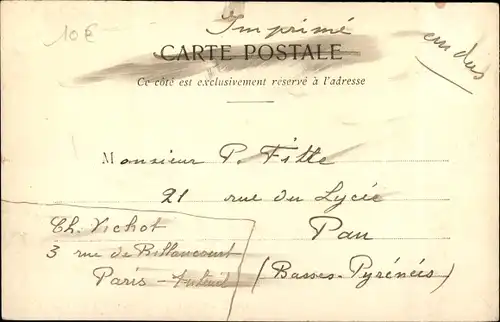 10€
Imprimé
CARTE POSTALE
Ce côté est exclusivement réservé à l'adresse
Monsieur P. Fitte
21 rue du Lycée
Pau
(Basses-Pyrénées)
Ch. Vichot
3 rue de Billancourt
Paris - Auteuil